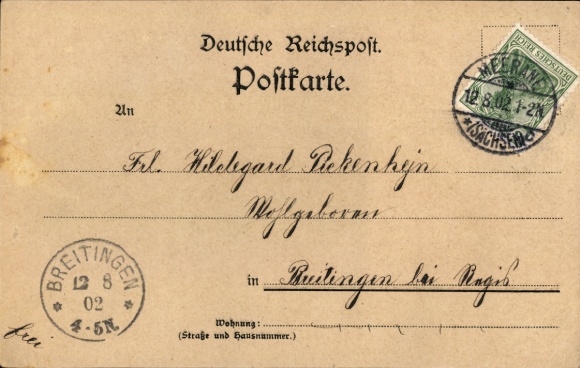 Deutsche Reichspost.
Postkarte.
DEUTSCHES REICH
MEERANE
12.8.02.1-2N
*(SACHSEN)
An
Frl. Hildegard Pickenhejn
Wohlgeboren
in Breitingen bei Regis
BREITINGEN
12 8
02
4-5N.
frei
Wohnung:
(Straße und Hausnummer.)